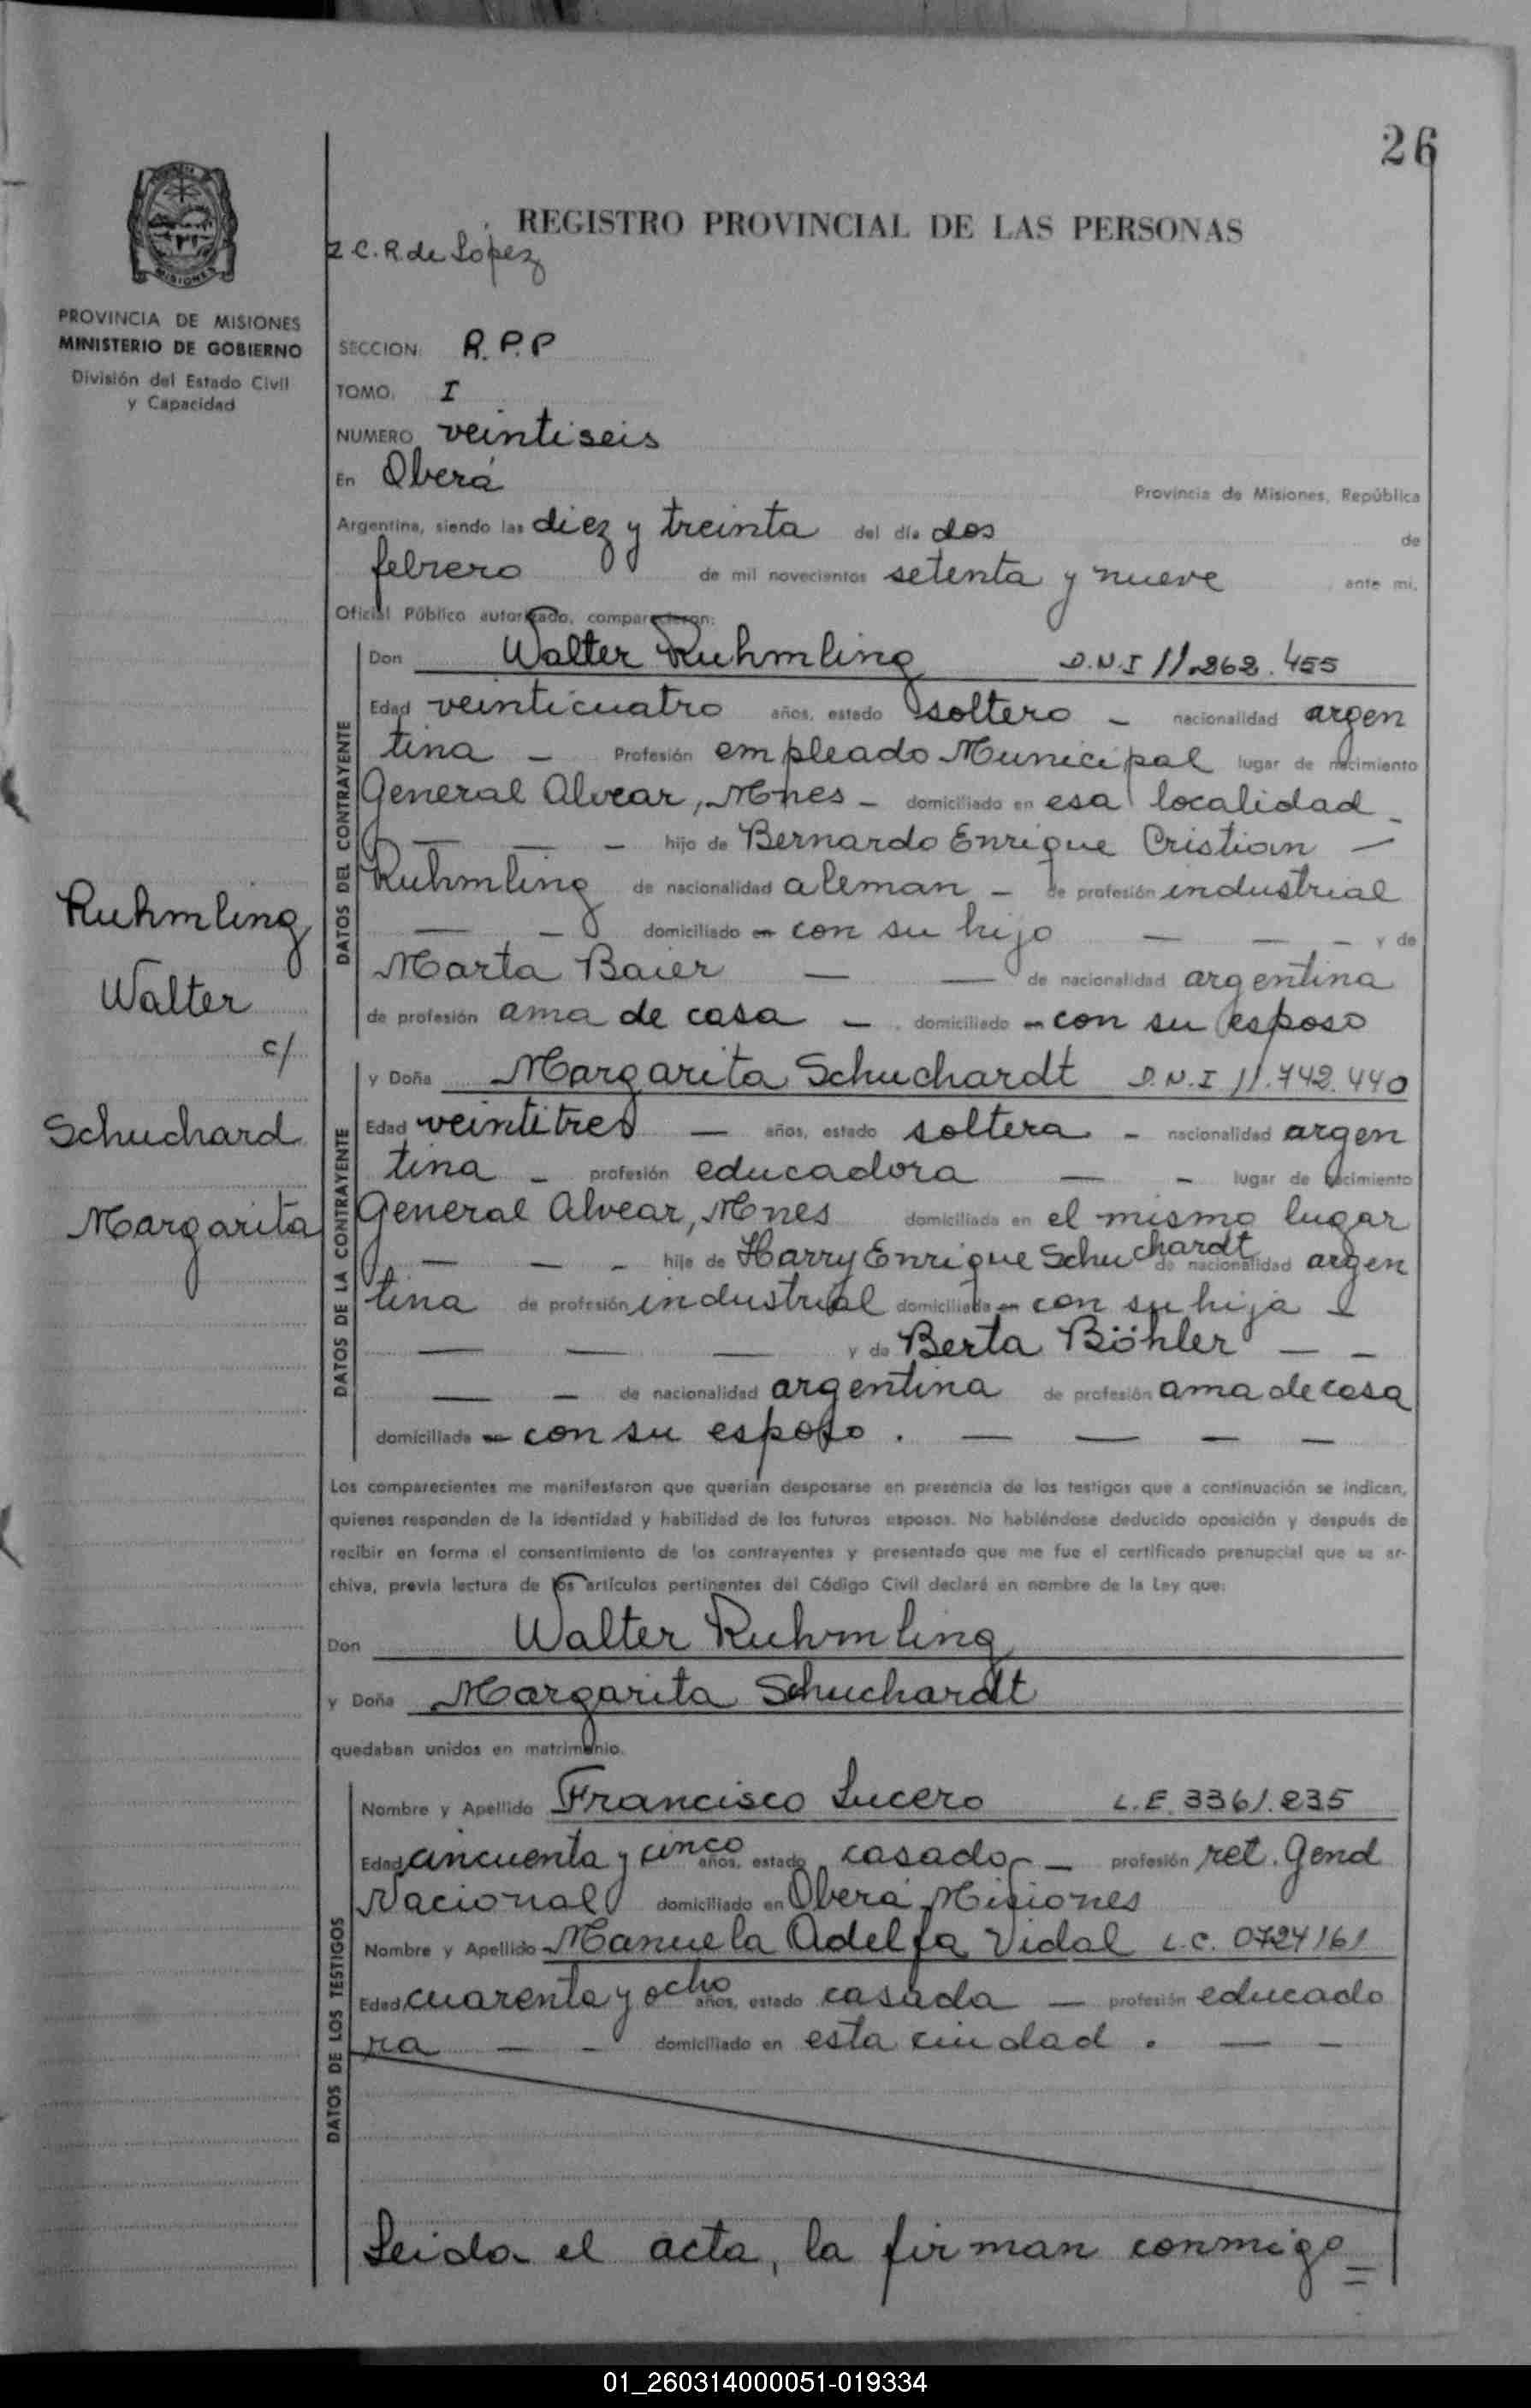 26
REGISTRO PROVINCIAL DE LAS PERSONAS
Z. C. R. de López
MISIONES
PROVINCIA DE MISIONES
MINISTERIO DE GOBIERNO
División del Estado Civil
y Capacidad
SECCION: R.P.P
TOMO, I
NUMERO veintiseis
En Oberá Provincia de Misiones, República
Argentina, siendo las diez y treinta del día dos de
febrero de mil novecientos setenta y nueve ante mi,
Oficial Público autorizado, comparecieron:
DATOS DEL CONTRAYENTE
Don Walter Ruhmling D.N.I 11.262.455
Edad veinticuatro años, estado soltero - nacionalidad argen
tina - Profesión empleado Municipal lugar de nacimiento
General Alvear, Mnes - domiciliado en esa localidad -
— — - hijo de Bernardo Enrique Cristian —
Ruhmling de nacionalidad aleman - de profesión industrial
— - domiciliado en con su hijo — — - y de
Marta Baier — — de nacionalidad argentina
de profesión ama de casa - domiciliado en con su esposo
Ruhmling
Walter
c/
Schuchard
Margarita
DATOS DE LA CONTRAYENTE
y Doña Margarita Schuchardt D.N.I 11.742.440
Edad veintitres — años, estado soltera - nacionalidad argen
tina - profesión educadora — - lugar de nacimiento
General Alvear, Mnes domiciliada en el mismo lugar
— — - hija de Harry Enrique Schuchardt de nacionalidad argen
tina de profesión industrial domiciliada en con su hija -
— — — y de Berta Böhler — -
— - de nacionalidad argentina de profesión ama de casa
domiciliada en con su esposo . — — - -
Los comparecientes me manifestaron que querían desposarse en presencia de los testigos que a continuación se indican,
quienes responden de la identidad y habilidad de los futuros esposos. No habiéndose deducido oposición y después de
recibir en forma el consentimiento de los contrayentes y presentado que me fue el certificado prenupcial que se ar-
chiva, previa lectura de los artículos pertinentes del Código Civil declaré en nombre de la Ley que:
Don Walter Ruhmling
y Doña Margarita Schuchardt
quedaban unidos en matrimonio.
DATOS DE LOS TESTIGOS
Nombre y Apellido Francisco Lucero L.E. 3361.235
Edad cincuenta y cinco años, estado casado - profesión ret. Gend
Nacional domiciliado en Oberá, Misiones
Nombre y Apellido Manuela Adelfa Vidal L.C. 0724161
Edad cuarenta y ocho años, estado casada — profesión educado
ra — - domiciliado en esta ciudad . — -
Leida el acta, la firman conmigo =
01_260314000051-019334